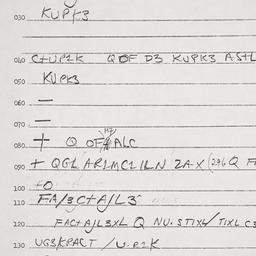 030 KUPK3
040 C+UP1K Q OF D3 KUPK3 A5+L
050 KUPK3
060 —
070 —
080 + Q OF ALC
090 + QG1 AR1MC1LN 2A X (246 Q F
100 FO
110 FA/3C+A/L3
120 FAC+A/L3XL Q NU. STIXL/TIXL C3
130 UG3/KPACT /U.P1K